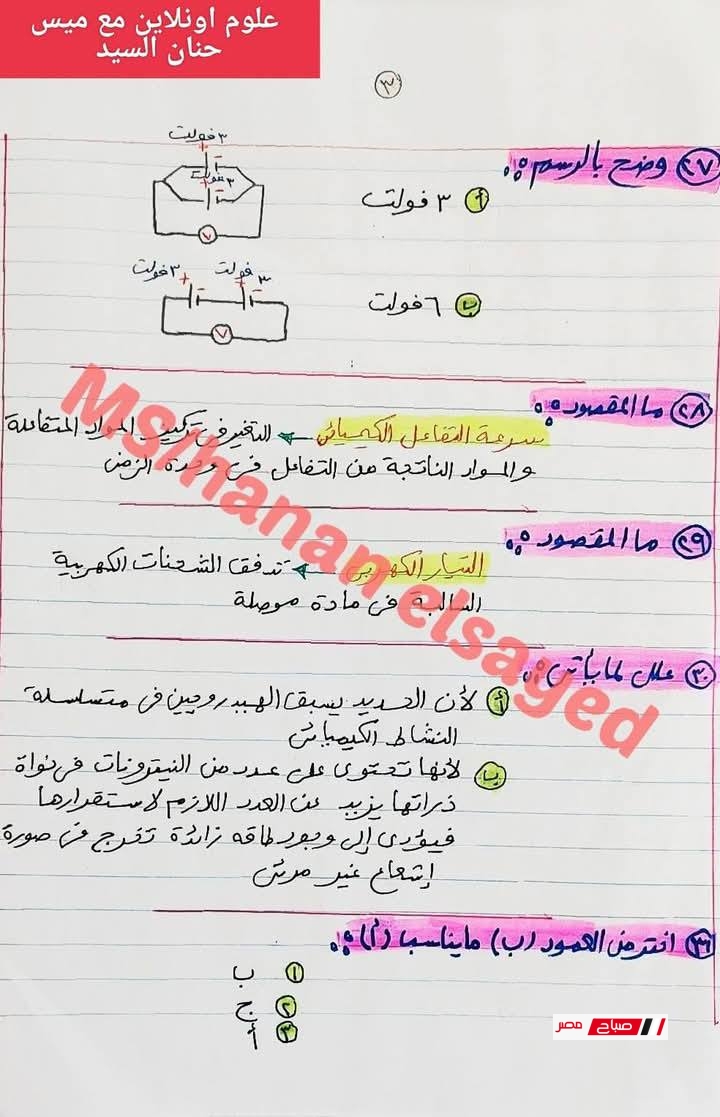 علوم اونلاين مع ميس
حنان السيد
٣
٢٧ وضح بالرسم :
أ ٣ فولت
٣ فولت
+ -
٣ فولت
+ -
V
ب ٦ فولت
٣ فولت ٣ فولت
+ - + -
V
٢٨ ما المقصود :
سرعة التفاعل الكيميائي ← التغير في تركيز المواد المتفاعلة
والمواد الناتجة من التفاعل في وحدة الزمن
٢٩ ما المقصود :
التيار الكهربي ← تدفق الشحنات الكهربية
السالبة في مادة موصلة
٣٠ علل لما يأتي :
أ لأن الحديد يسبق الهيدروجين في متسلسلة
النشاط الكيميائي
ب لأنها تحتوى على عدد من النيترونات في نواة
ذراتها يزيد عن العدد اللازم لاستقرارها
فيؤدى إلى وجود طاقه زائدة تخرج في صورة
إشعاع غير مرئي
٣١ اختر من العمود (ب) ما يناسب (أ) :
١ ب
٢ ج
٣ أ
MS/hanan elsayed
صباح مصر